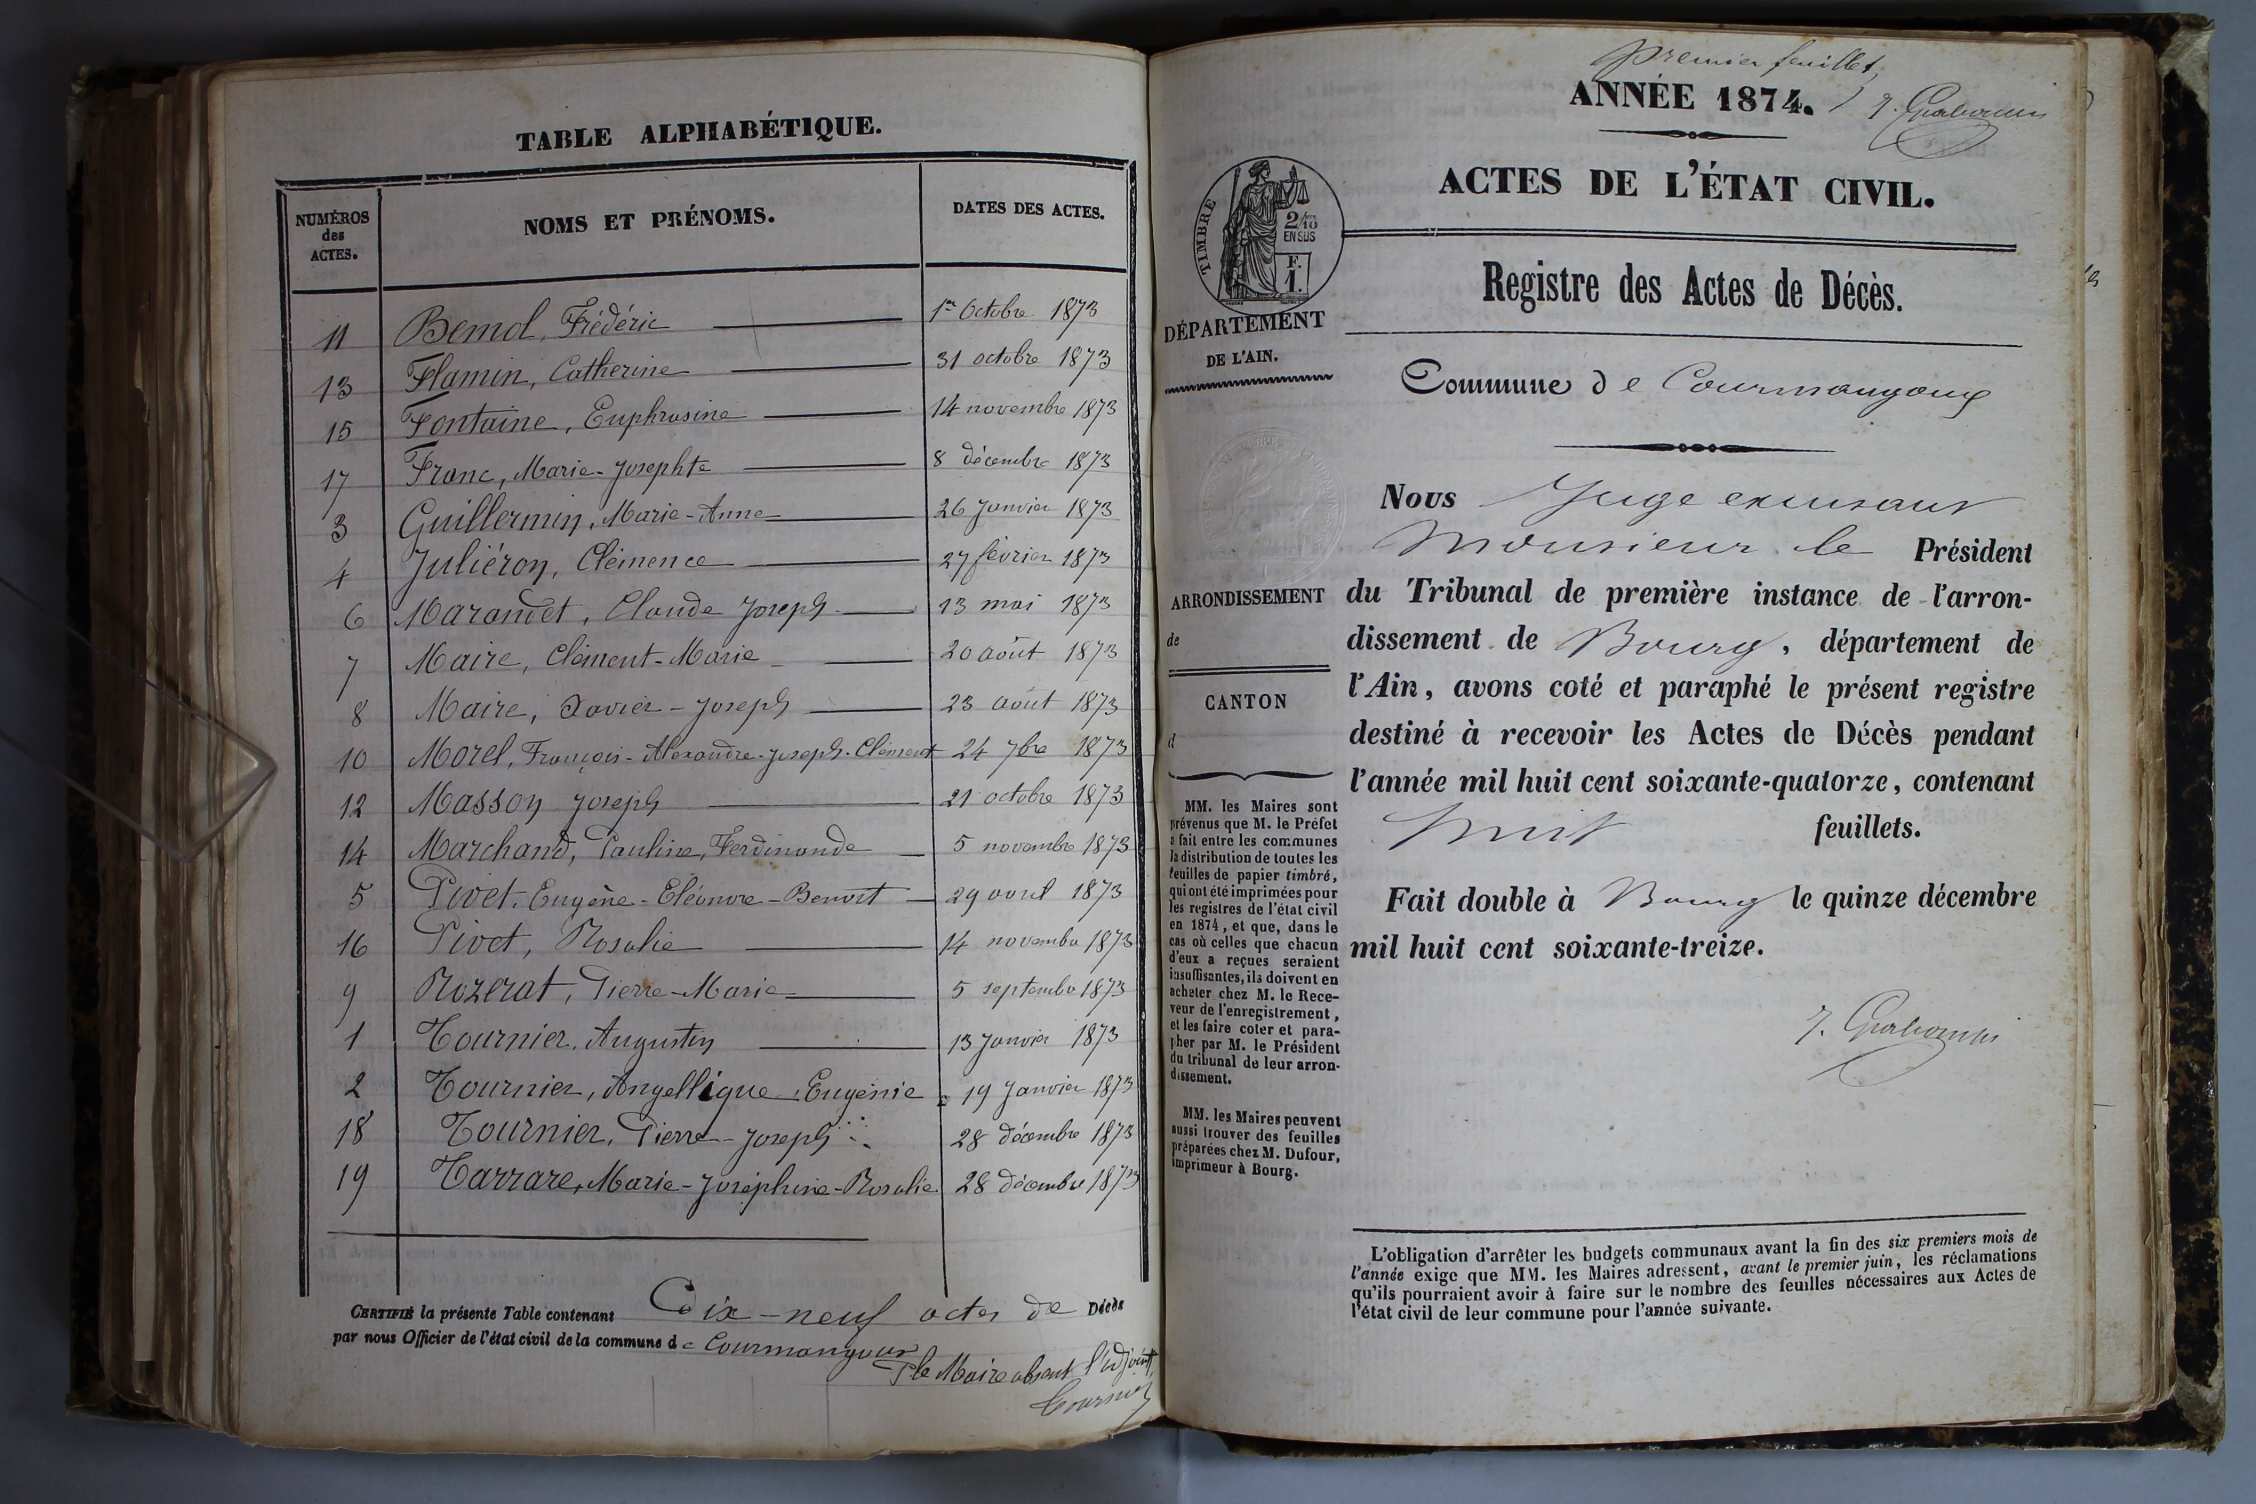 TABLE ALPHABÉTIQUE.
NUMÉROS des ACTES. NOMS ET PRÉNOMS. DATES DES ACTES.
11 Bemol, Frédéric 1er Octobre 1873
13 Flamin, Catherine 31 octobre 1873
15 Fontaine, Euphrosine 14 novembre 1873
17 Franc, Marie-Josephte 8 décembre 1873
3 Guillermin, Marie-Anne 26 Janvier 1873
4 Juliéron, Clémence 27 février 1873
6 Marandet, Claude Joseph 13 mai 1873
7 Maire, Clément-Marie 20 août 1873
8 Maire, Xavier-Joseph 23 août 1873
10 Morel, François-Alexandre-Joseph-Clément 24 7bre 1873
12 Masson Joseph 21 octobre 1873
14 Marchand, Pauline, Ferdinande 5 novembre 1873
5 Pivet, Eugène-Eléonore-Benoît 29 avril 1873
16 Pivet, Rosalie 14 novembre 1873
9 Rozerat, Pierre-Marie 5 septembre 1873
1 Tournier, Augustin 13 Janvier 1873
2 Tournier, Angellique, Eugénie 19 Janvier 1873
18 Tournier, Pierre-Joseph 28 décembre 1873
19 Tarrare, Marie-Joséphine-Rosalie 28 décembre 1873
CERTIFIÉ la présente Table contenant Dix-neuf actes de Décès
par nous Officier de l'état civil de la commune de Courmangoux
P le Maire absent l'adjoint
Tournier
premier feuillet,
ANNÉE 1874.
ACTES DE L'ÉTAT CIVIL.
TIMBRE
2/10 EN SUS
F. 1.
Registre des Actes de Décès.
DÉPARTEMENT
DE L'AIN.
Commune de Courmangoux
Nous Juge excusant
Monsieur le Président
du Tribunal de première instance de l'arron-
dissement de Bourg, département de
l'Ain, avons coté et paraphé le présent registre
destiné à recevoir les Actes de Décès pendant
l'année mil huit cent soixante-quatorze, contenant
huit feuillets.
Fait double à Bourg le quinze décembre
mil huit cent soixante-treize.
ARRONDISSEMENT
de
CANTON
d
MM. les Maires sont
prévenus que M. le Préfet
a fait entre les communes
la distribution de toutes les
feuilles de papier timbré,
qui ont été imprimées pour
les registres de l'état civil
en 1874, et que, dans le
cas où celles que chacun
d'eux a reçues seraient
insuffisantes, ils doivent en
acheter chez M. le Rece-
veur de l'enregistrement,
et les faire coter et para-
pher par M. le Président
du tribunal de leur arron-
dissement.
MM. les Maires peuvent
aussi trouver des feuilles
préparées chez M. Dufour,
imprimeur à Bourg.
L'obligation d'arrêter les budgets communaux avant la fin des six premiers mois de
l'année exige que MM. les Maires adressent, avant le premier juin, les réclamations
qu'ils pourraient avoir à faire sur le nombre des feuilles nécessaires aux Actes de
l'état civil de leur commune pour l'année suivante.